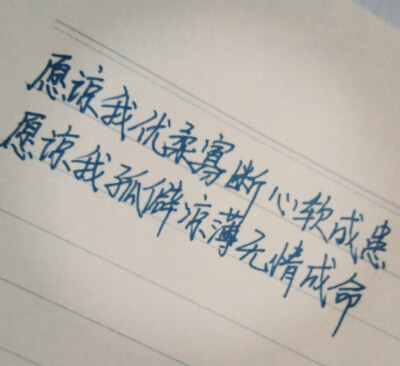 愿谅我优柔寡断心软成患
愿谅我孤僻凉薄无情成命